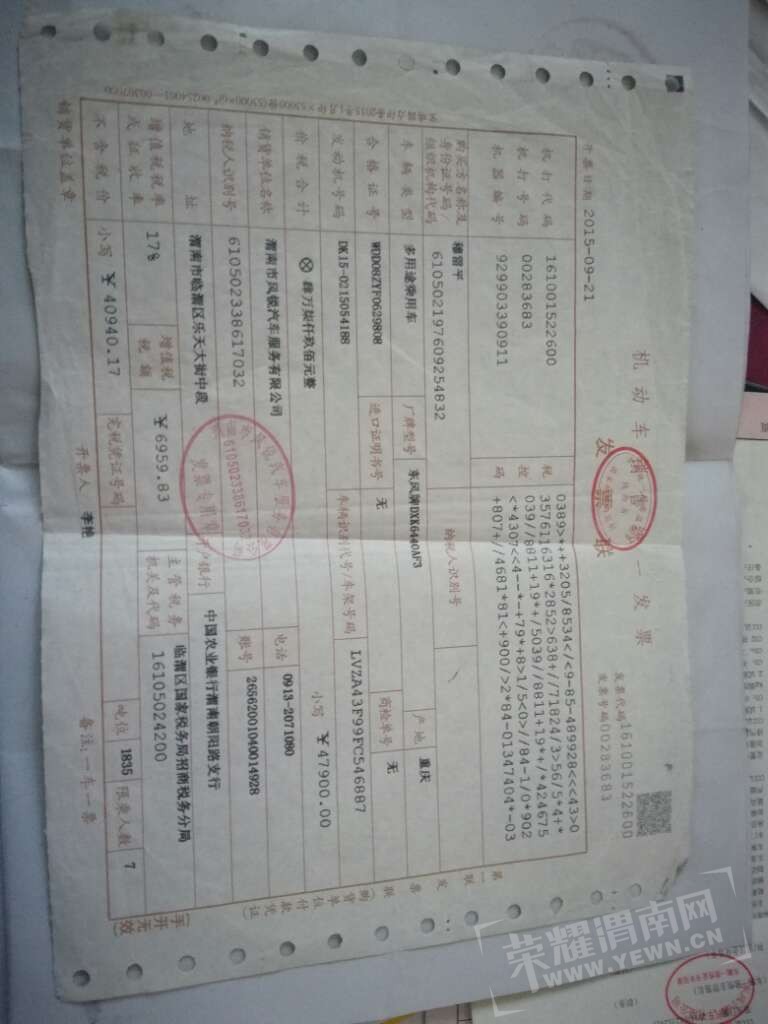 机动车销售统一发票
发票联
发票代码 161001522600
发票号码 00283683
开票日期 2015-09-21
机打代码 161001522600
机打号码 00283683
机器编号 929903390911
税控码
0389>*++3205/8534</<9-85-489928<<<43>0
35761163 16*2852>638+//71824/3>56/5*4+*
039//8811+19*+/5039//8811+19*+/*424675
<*4307<<4--*-+79*+8>1/5<0>//84-1/0*902
+807+//4681*81<+900/>2*84-01347404*-03
购买方名称及身份证号码/组织机构代码 穆雷平
610502197609254832
纳税人识别号 \
车辆类型 多用途乘用车 厂牌型号 东风牌DXK6440AF3 产地 重庆
合格证号 WDD08ZYF0629808 进口证明书号 无 商检单号 无
发动机号码 DK15-0215054188 车辆识别代号/车架号码 LVZA43F99FC546887
价税合计 ⊗ 肆万柒仟玖佰元整 小写 ¥ 47900.00
销货单位名称 渭南市风锐汽车服务有限公司 电话 0913-2071080
纳税人识别号 610502338617032 账号 26562001040014928
地址 渭南市临渭区乐天大街中段 开户银行 中国农业银行渭南朝阳路支行
增值税税率或征收率 17% 增值税税额 ¥ 6959.83 主管税务机关及代码 临渭区国家税务局招商税务分局
16105024200
不含税价 小写 ¥ 40940.17 完税凭证号码 吨位 1835 限乘人数 7
销货单位盖章 开票人 李艳 备注：一车一票
第一联 发票联 (购货单位付款凭证)
(手开无效)
610502338617032
发票专用章
荣耀渭南网
WWW.YEWN.CN